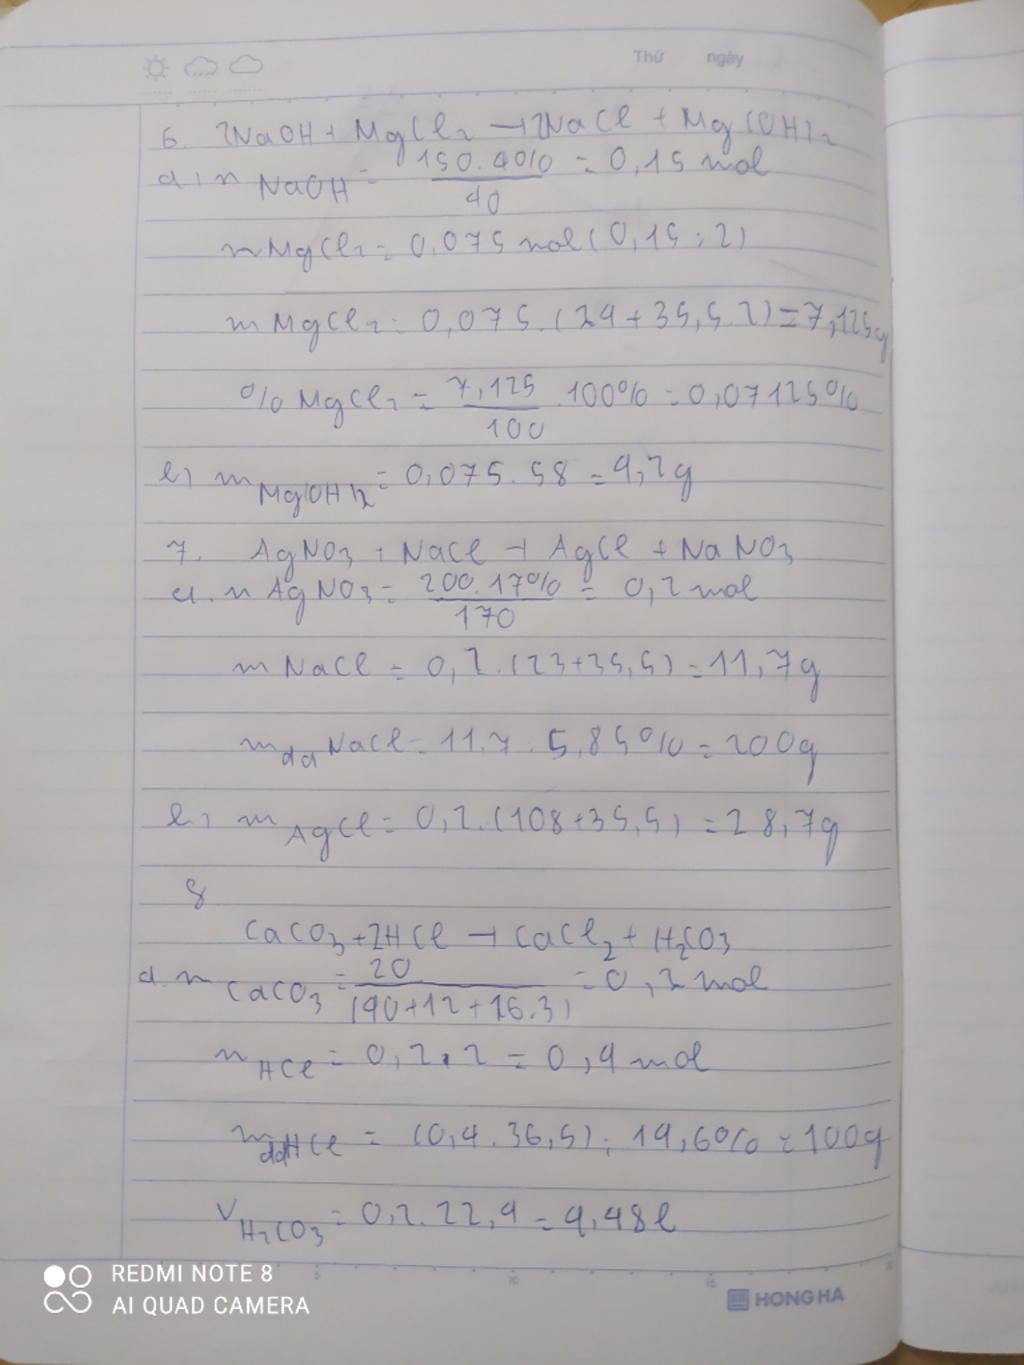 Thứ ngày
6. 2NaOH + MgCl2 → 2NaCl + Mg(OH)2
a, n NaOH = 150.4% / 40 = 0,15 mol
nMgCl2 = 0,075 mol (0,15:2)
mMgCl2 = 0,075.(24+35,5.2) = 7,125g
%MgCl2 = 7,125 / 100 .100% = 0,07125%
b, m Mg(OH)2 = 0,075.58 = 4,2g
7. AgNO3 + NaCl → AgCl + NaNO3
a. n AgNO3 = 200.17% / 170 = 0,2 mol
mNaCl = 0,2.(23+35,5) = 11,7g
mdd NaCl = 11,7 . 5,85% = 200g
b, m AgCl = 0,2.(108+35,5) = 28,7g
8
CaCO3 + 2HCl → CaCl2 + H2CO3
a. n CaCO3 = 20 / (40+12+16.3) = 0,2 mol
n HCl = 0,2.2 = 0,4 mol
mdd HCl = (0,4.36,5): 14,6% = 100g
V H2CO3 = 0,2.22,4 = 4,48l
REDMI NOTE 8
AI QUAD CAMERA
5 10 15
HONG HA